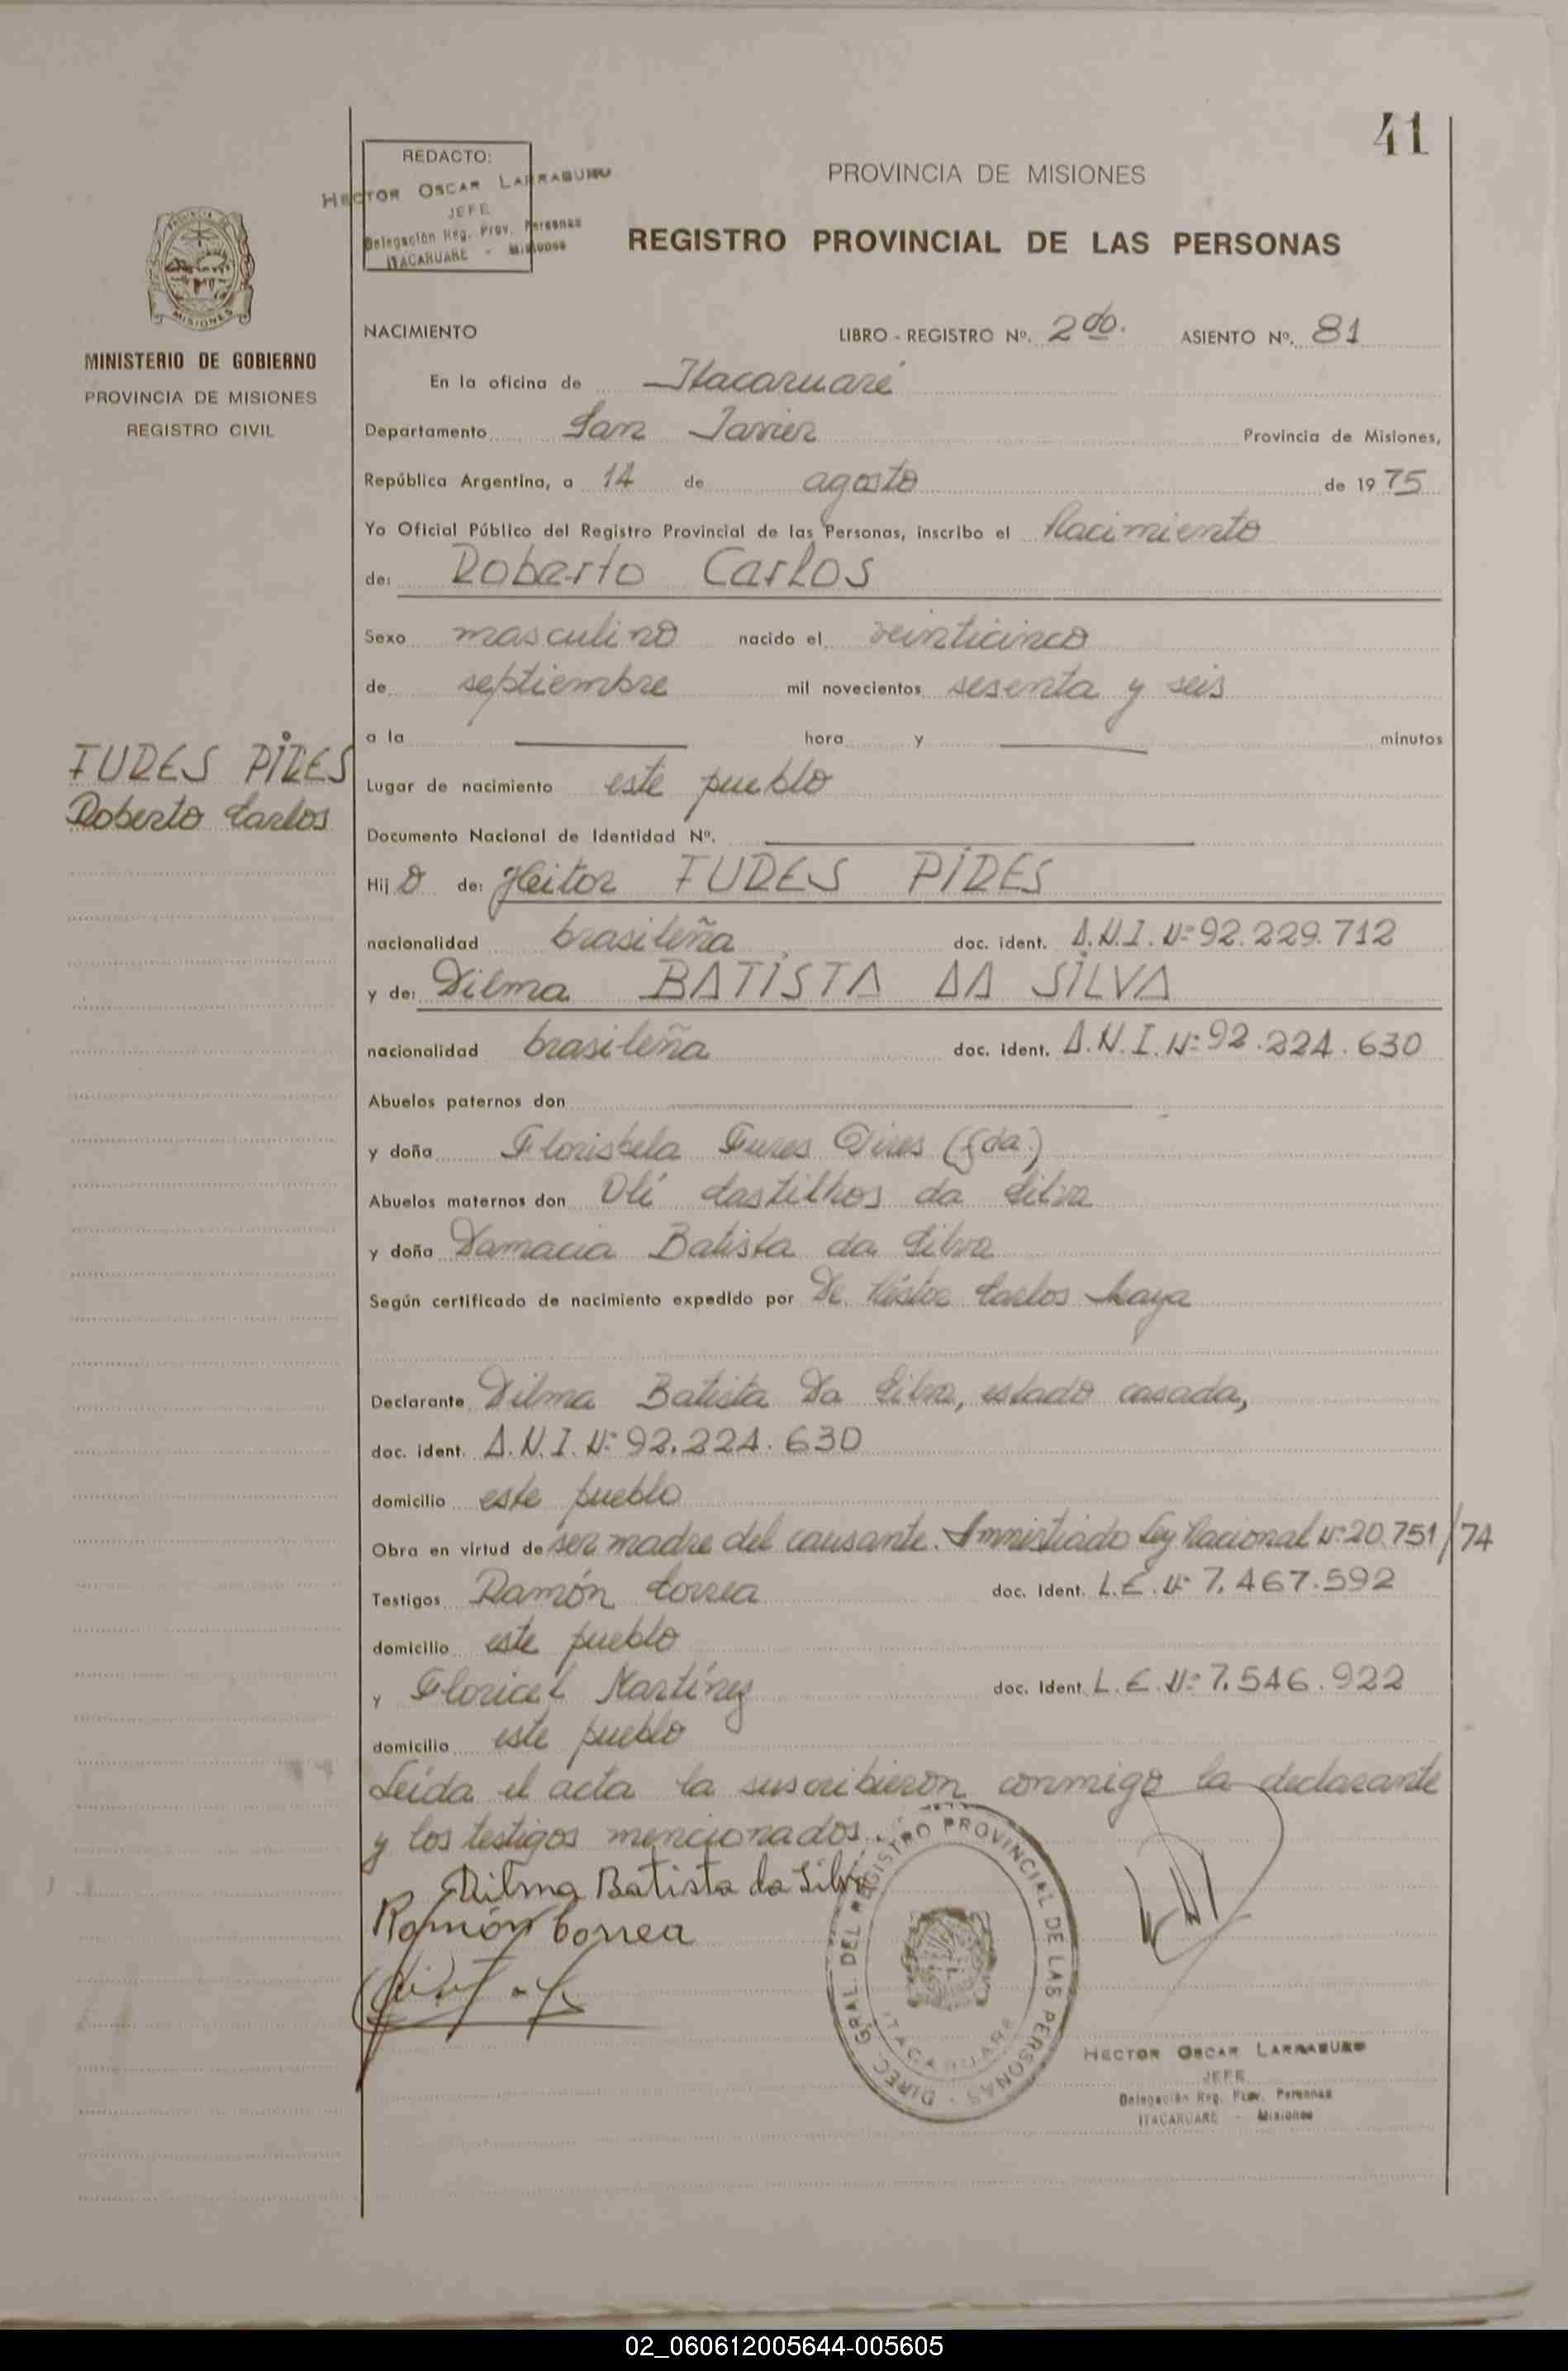 41
REDACTO:
HECTOR OSCAR LARRABURU
JEFE
Delegación Reg. Prov. Personas
ITACARUARE - Misiones
PROVINCIA DE MISIONES
REGISTRO PROVINCIAL DE LAS PERSONAS
MISIONES
MINISTERIO DE GOBIERNO
PROVINCIA DE MISIONES
REGISTRO CIVIL
NACIMIENTO LIBRO - REGISTRO Nº. 2do. ASIENTO Nº. 81
En la oficina de Itacaruaré
Departamento San Javier Provincia de Misiones,
República Argentina, a 14 de agosto de 1975
Yo Oficial Público del Registro Provincial de las Personas, inscribo el Nacimiento
de: Roberto Carlos
Sexo masculino nacido el veinticinco
de septiembre mil novecientos sesenta y seis
a la hora y minutos
FURES PIRES
Roberto Carlos
Lugar de nacimiento este pueblo
Documento Nacional de Identidad Nº.
Hijo de: Heitor FURES PIRES
nacionalidad brasileña doc. ident. D.N.I. Nº 92.229.712
y de: Dilma BATISTA DA SILVA
nacionalidad brasileña doc. ident. D.N.I. Nº 92.224.630
Abuelos paternos don
y doña Florisbela Fures Pires (fda.)
Abuelos maternos don Olí Castilhos da Silva
y doña Damacia Batista da Silva
Según certificado de nacimiento expedido por Dr. Héctor Carlos Maya
Declarante Dilma Batista Da Silva, estado casada,
doc. ident. D.N.I. Nº 92.224.630
domicilio este pueblo
Obra en virtud de ser madre del causante. Amnistiado Ley Nacional Nº 20.751/74
Testigos Ramón Correa doc. Ident. L.E. Nº 7.467.592
domicilio este pueblo
y Floricel Martínez doc. Ident. L.E. Nº 7.546.922
domicilio este pueblo
Leída el acta la suscribieron conmigo la declarante
y los testigos mencionados.
Dilma Batista da Silva
Ramón Correa
DIREC. GRAL. DEL REGISTRO PROVINCIAL DE LAS PERSONAS -
ITACARUARE
HECTOR OSCAR LARRABURU
JEFE
Delegación Reg. Prov. Personas
ITACARUARE - Misiones
02_060612005644-005605